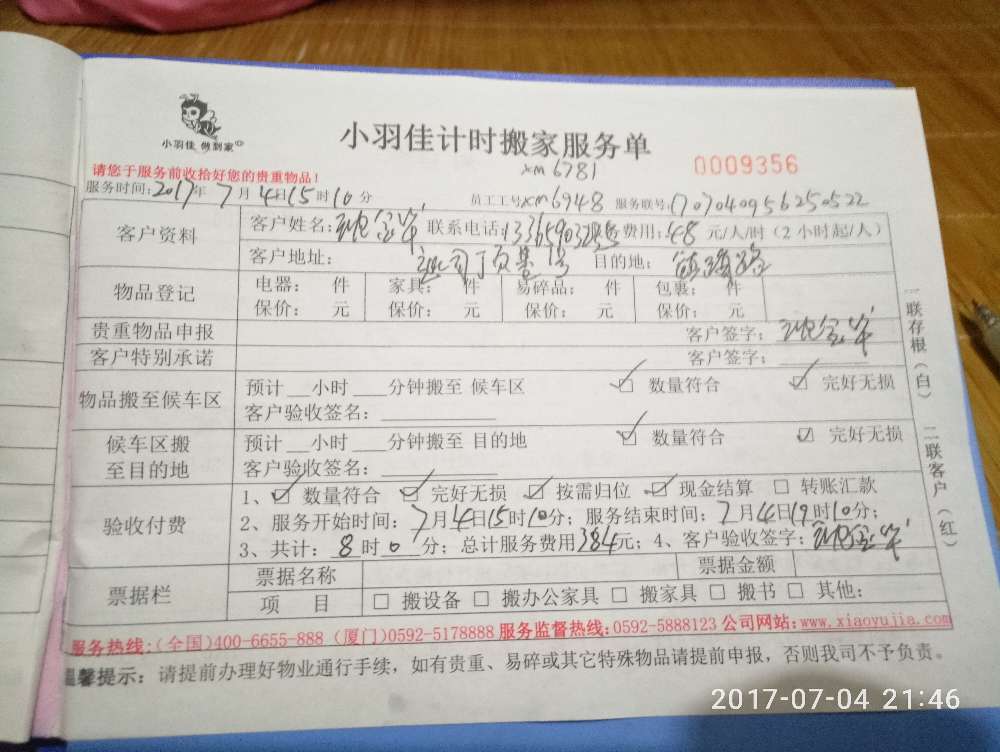 小羽佳 做到家
小羽佳计时搬家服务单
xm6781
0009356
请您于服务前收拾好您的贵重物品！
服务时间：2017年7月4日15时10分 员工工号xm6948 服务联号：
客户资料 客户姓名： 联系电话： 费用：48元/人/时（2小时起/人）
客户地址： 目的地：
物品登记 电器： 件 家具： 件 易碎品： 件 包裹： 件
保价： 元 保价： 元 保价： 元 保价： 元
贵重物品申报 客户签字：
客户特别承诺 客户签字：
物品搬至候车区 预计__小时___分钟搬至 候车区 ☑ 数量符合 ☑ 完好无损
客户验收签名：
候车区搬至目的地 预计__小时___分钟搬至 目的地 ☑ 数量符合 ☑ 完好无损
客户验收签名：
验收付费 1、☑ 数量符合 ☑ 完好无损 ☑ 按需归位 ☑ 现金结算 □ 转账汇款
2、服务开始时间：7月4日15时10分；服务结束时间：7月4日19时10分；
3、共计：8时0分；总计服务费用384元；4、客户验收签字：
票据栏 票据名称 票据金额
项 目 □ 搬设备 □ 搬办公家具 □ 搬家具 □ 搬书 □ 其他：
一联存根（白） 二联客户（红）
服务热线：（全国）400-6655-888（厦门）0592-5178888 服务监督热线：0592-5888123 公司网站：www.xiaoyujia.com
温馨提示：请提前办理好物业通行手续，如有贵重、易碎或其它特殊物品请提前申报，否则我司不予负责。
2017-07-04 21:46